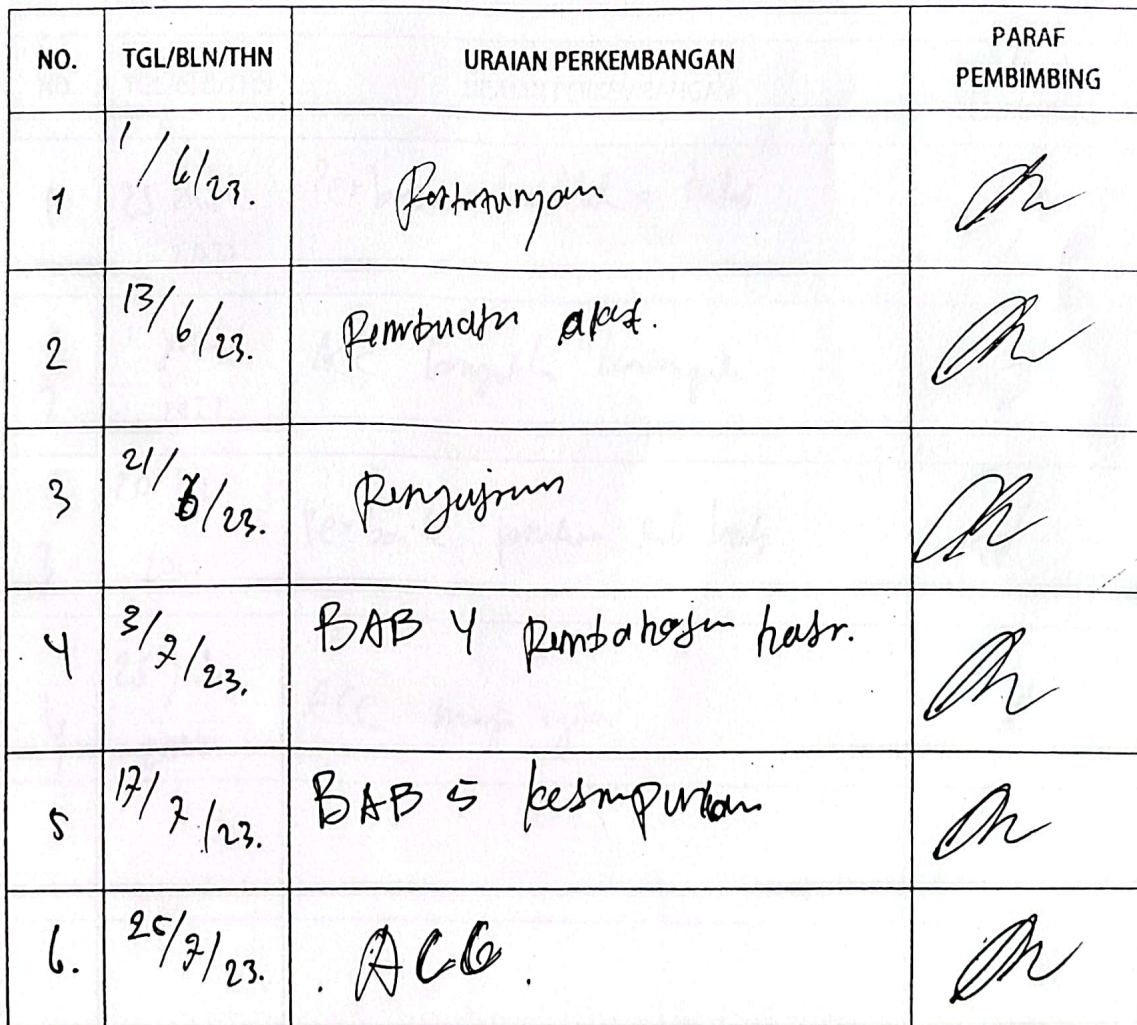 NO. TGL/BLN/THN URAIAN PERKEMBANGAN PARAF PEMBIMBING
1 1/6/23. Perhitungan
2 13/6/23. Pembuatan alat.
3 21/6/23. Pengujian
4 3/7/23. BAB 4 pembahasan hasil.
5 17/7/23. BAB 5 kesimpulan
6. 25/7/23. ACC.